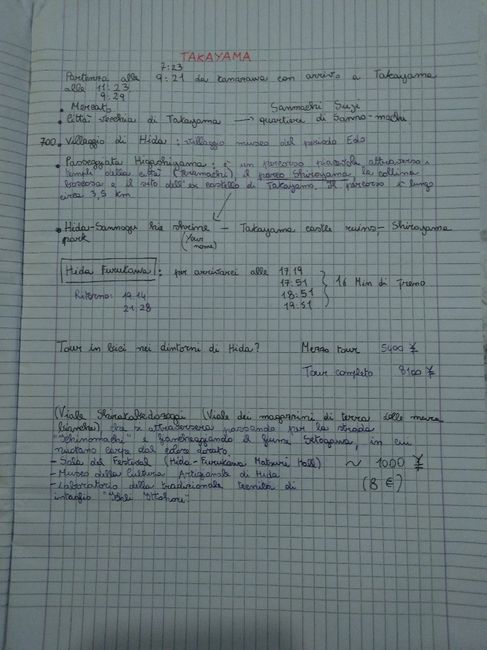 TAKAYAMA
7:23
Partenza alle 9:21 da Kanazawa con arrivo a Takayama
alle 11:23
9:29
• Mercato
Sanmachi Suji
• Città vecchia di Takayama → quartiere di Sanno-machi
700 • Villaggio di Hida: villaggio museo del periodo Edo
• Passeggiata Higashiyama: è un percorso piacevole attraverso i
templi della città (Teramachi), il parco Shiroyama, la collina
boscosa e il sito dell'ex castello di Takayama. Il percorso è lungo
circa 3,5 km
• Hida-Sannogu hie shrine – Takayama castle ruins – Shiroyama
park
(Your name)
Hida Furukawa: per arrivarci alle 17:19
17:51
18:51
19:51
16 Min di Treno
Ritorno: 19:14
21:28
Tour in bici nei dintorni di Hida?
Mezzo tour 5400 ¥
Tour completo 8100 ¥
(Viale Shirakabedozogai (Viale dei magazzini di terra dalle mura
bianche), che si attraverserà passando per la strada
"Ichinomachi" e fiancheggiando il fiume Setogawa, in cui
nuotano carpe dal colore dorato.
- Sala del Festival (Hida-Furukawa Matsuri Hall) ~ 1000 ¥
- Museo della Cultura Artigianale di Hida
(8 €)
- Laboratorio della tradizionale tecnica di
intaglio "Ichii Ittobori"